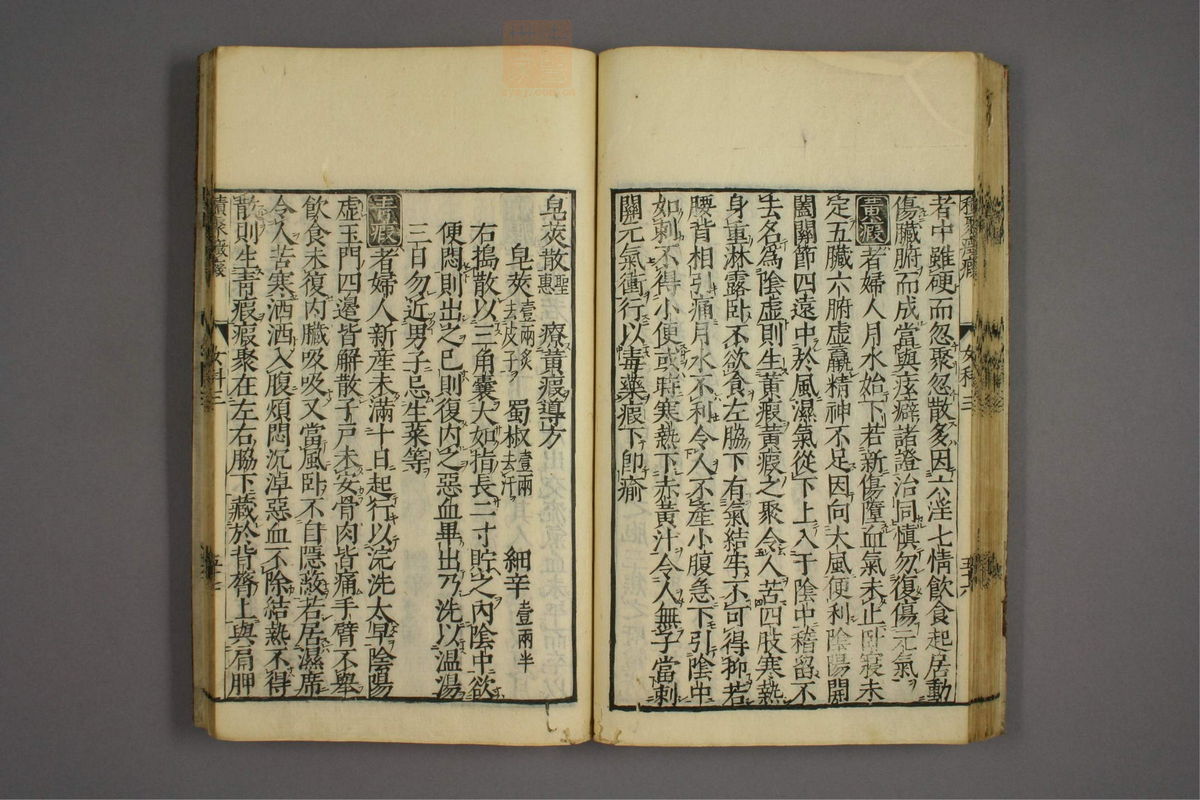 者中雖硬而忽聚忽散多因六淫七情飲食起居動
傷臟腑而成當與痃癖諸證治同慎勿復傷元氣
黃瘕者婦人月水始下若新傷墮血氣未止臥寢未
定五臟六腑虛羸精神不足因向大風便利陰陽開
闔關節四遠中於風濕氣從下上入于陰中稽留不
去名為陰虛則生黃瘕黃瘕之聚令人苦四肢寒熱
身重淋露臥不欲食左脇下有氣結牢不可得抑若
腰背相引痛月水不利令人不產小腹急下引陰中
如刺不得小便或時寒熱下赤黃汁令人無子當刺
關元氣衝行以毒藥瘕下即瘉
皂莢散聖惠 療黃瘕導方
皂莢壹兩炙去皮子 蜀椒壹兩去汗 細辛壹兩半
右搗散以三角囊大如指長二寸貯之內陰中欲
便悶則出之已則復內之惡血畢出乃洗以溫湯
三日勿近男子忌生菜等
青瘕者婦人新產未滿十日起行以浣洗太早陰陽
虛玉門四邊皆解散子戶未安骨肉皆痛手臂不舉
飲食未復內臟吸吸又當風臥不自隱蔽若居濕席
令人苦寒洒洒入腹煩悶沉淖惡血不除結熱不得
散則生青瘕瘕聚在左右脇下藏於背膂上與肩胛
女科三